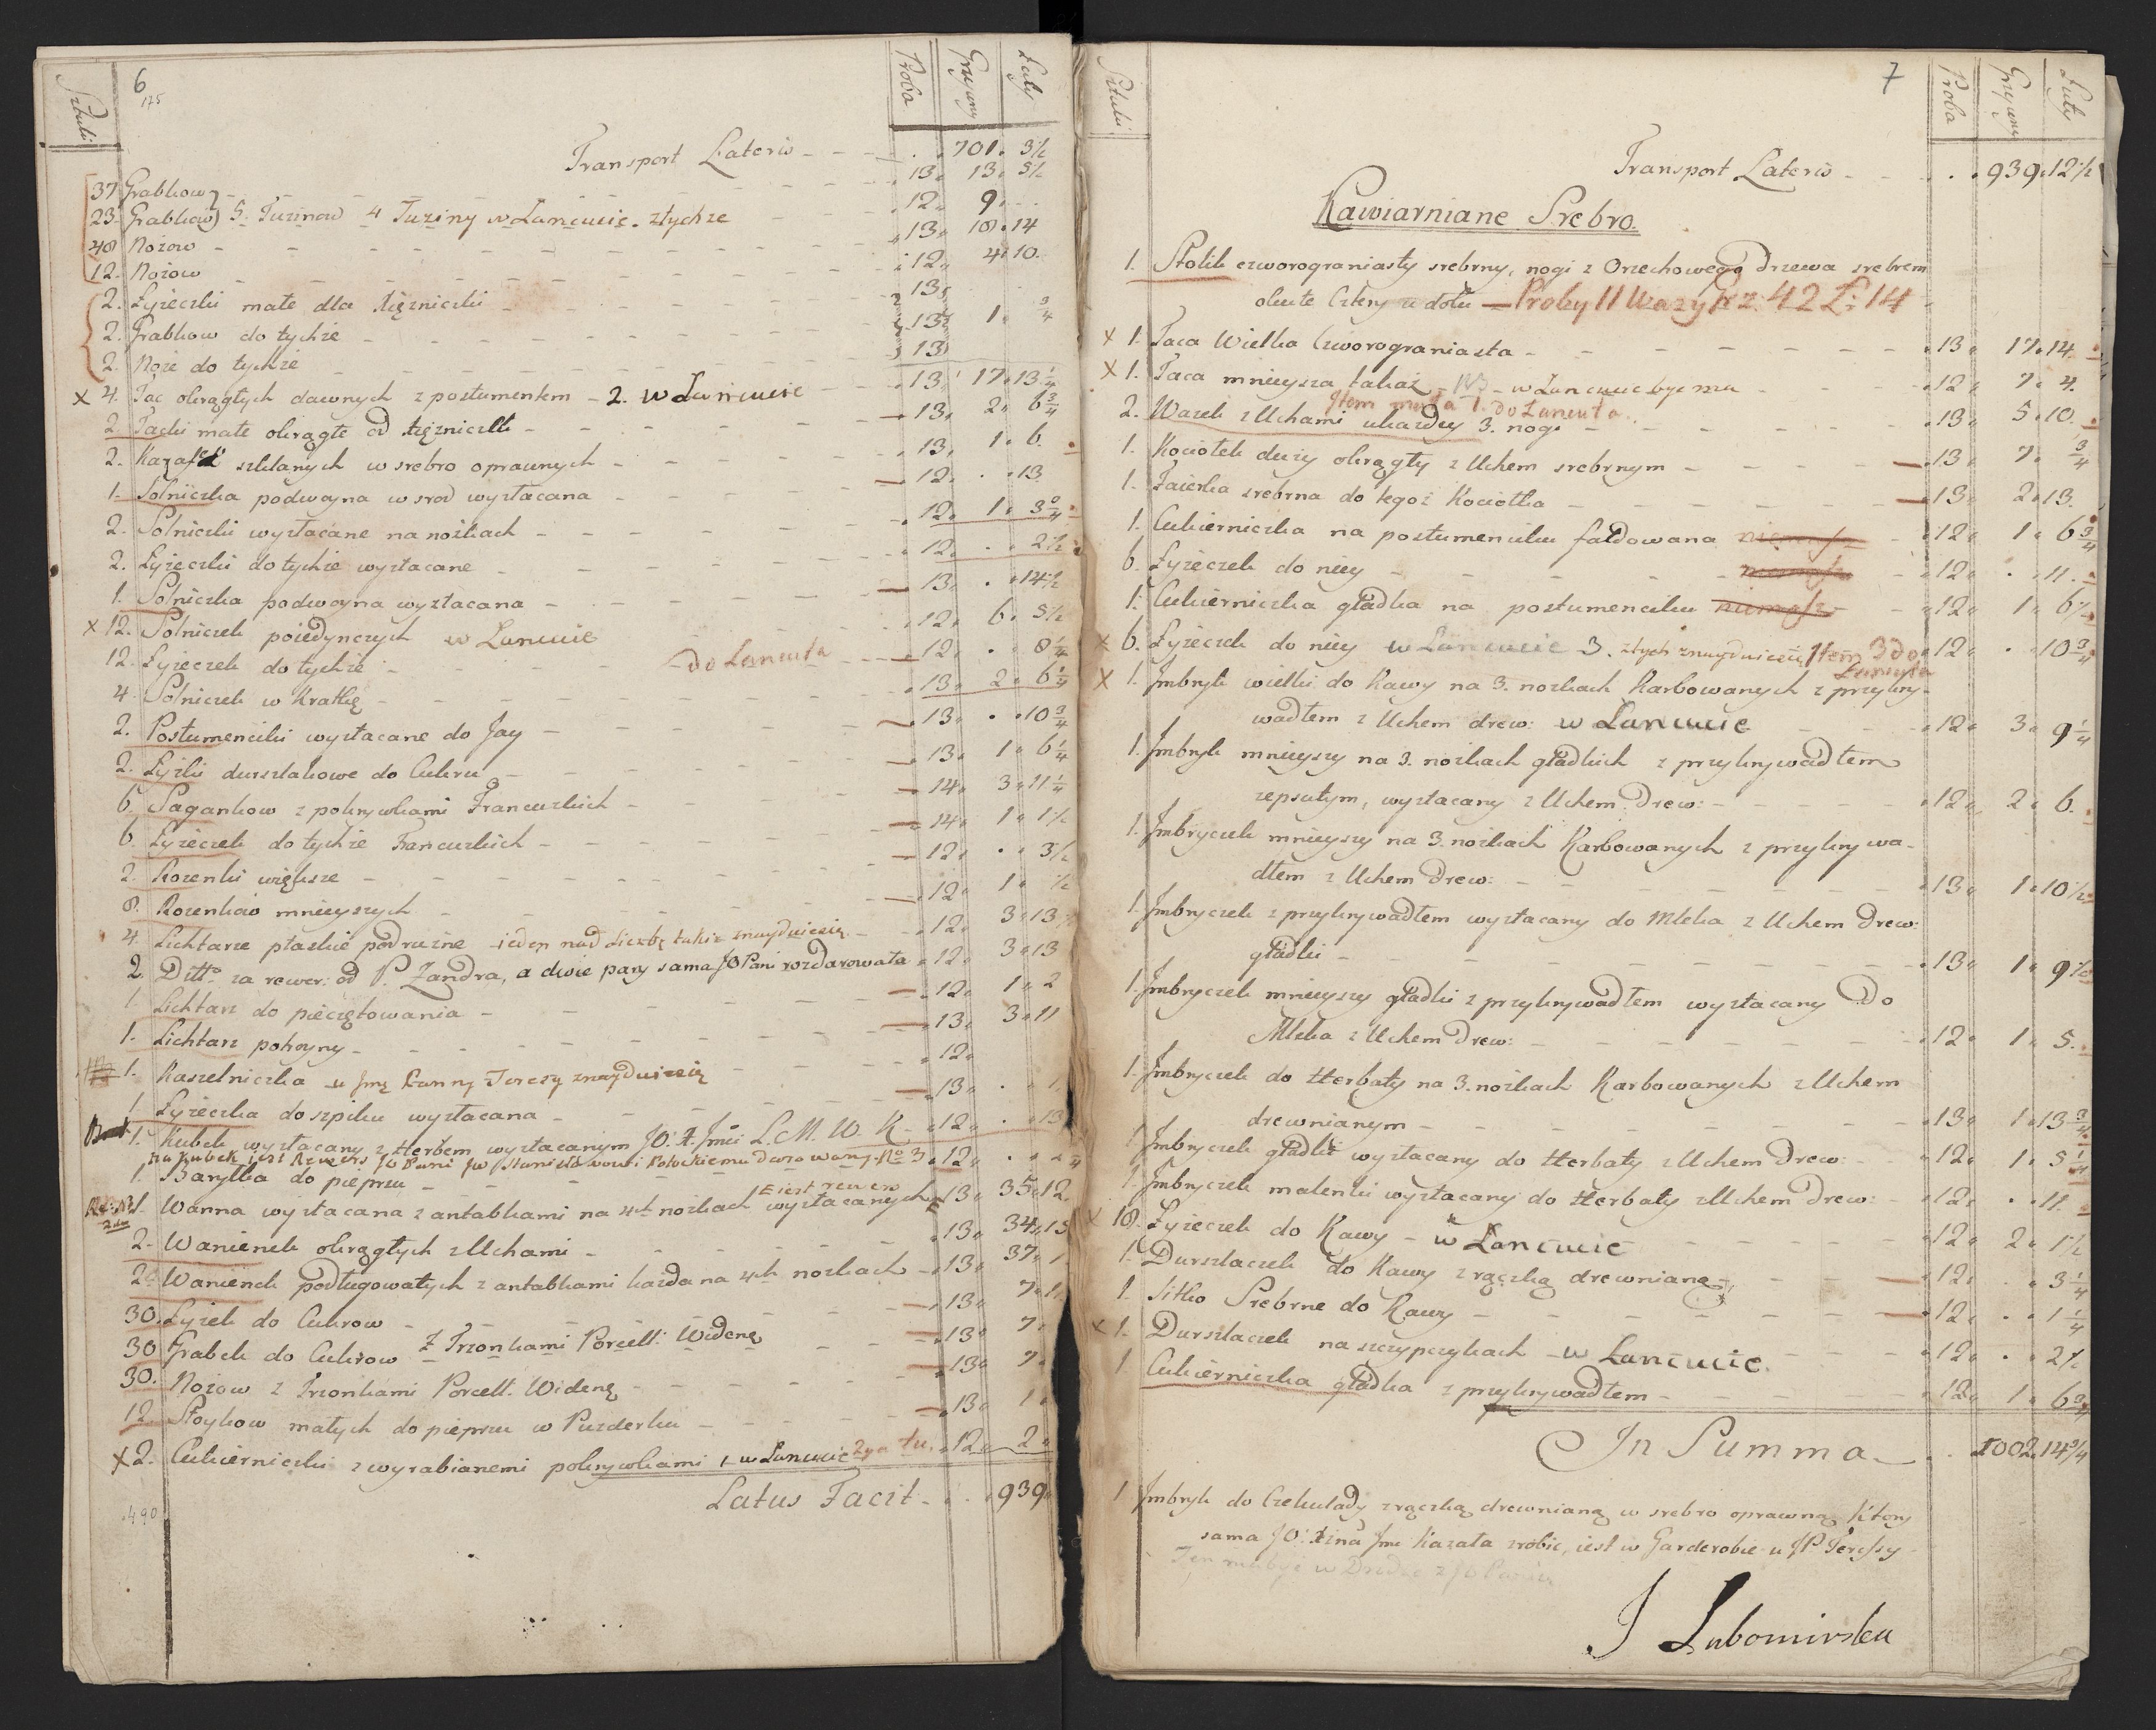 6
175
Sztuki Proba Grzywny Łuty
Transport Lateris - - - . 701. 3½
37 Grabkow - 13. 13. 5½
23. Grabkow 5. Tuzinow 4 Tuziny w Łancucie. ztychze 12. 9.
48 Nozow - 13. 18. 14
12. Nozow 12. 4. 10.
2. Łyzeczki małe dla 13.
2. Grabkow do tychze 13. 1. ¾
2. Noze do tychze 13
x 4. Tac okrągłych dawnych z postumentem - 2. w Łancucie 13. 17. 13¼
2. Tacki małe okrągłe od 13. 2. 6¾
2. Karafek szklanych w srebro oprawnych - 13. 1. 6.
1. Solniczka podwoyna w srod wyzłacana - 12. . 13.
2. Solniczki wyzłacane na nozkach - 12. 1. 3¾
2. Łyzeczki do tychze wyzłacane - 12. . 2½
1. Solniczka podwoyna wyzłacana - 13. . 14½
x 12. Solniczek poiedynczych w Łancucie 12. 6. 5½
12. Łyzeczek do tychze - do Łancuta 12. . 8¼
4. Solniczek w Kratkę 13. 2. 6¼
2. Postumenciki wyzłacane do Jay - 13. . 10¾
2. Łyzki durszlakowe do Cukru - 13. 1. 6¼
6. Sagankow z pokrywkami Francuzkich - 14. 3. 11¼
6. Łyzeczek do tychze Francuzkich - 14. 1. 1½
2. Rozenki większe - 12. . 3½
8. Rozenkow mnieyszych 12. 1. ½
4. Lichtarze płaskie podruzne - ieden nad Liczbę takze znayduiesię 12. 3. 13
2. Ditto za rewer: od P. Zandra, a dwie pary sama JO Pani rozdarowała 12. 3. 13
1. Lichtarz do pieczętowania - 12. 1. 2
1. Lichtarz pokoyny - 13. 3. 11
1. Kaszelniczka u Jmę Panny Terezy znayduiesię 12.
1. Łyzeczka do szpiku wyzłacana - 13. . 1
1. Kubek wyzłacany z Herbem wyzłacanym JO. X. Jmci L. M. W. K. - 12. . 13
na kubek iest Rewers JO Pani JW Stanisławowi Potockiemu darowany. No 3.
1. Baryłka do pieprzu - 12.
E iest rewers
1. Wanna wyzłacana z antabkami na 4ch nozkach wyzłacanych 13. 35. 12.
2. Wanienek okrągłych z Uchami - 13. 34. 15
2. Wanienek podługowatych z antabkami kazda na 4ch nozkach - 13. 37. 1
30. Łyzek do Cukrow - 13. 7. 11
30 Grabek do Cukrow z Trzonkami Porcell: Wideng 13. 7.
30. Nozow z Trzonkami Porcell. Wideng - 13. 7.
12 Słoykow małych do pieprzu w Puzderku - 13. 1.
x 2. Cukierniczki z wyrabianemi pokrywkami 1 w Łancucie 2ga tu. 12. 2.
Latus Facit - . . 939.
490
7
Sztuki Proba Grzywny Łuty
Transport Lateris - - . . 939. 12½
Kawiarniane Srebro.
1. Stolik czworograniasty srebrny, nogi z Orzechowego drzewa srebrem
okute Cztery u dołu - Proby 11 Wazy grz: 42 Ł: 14
x 1. Taca Wielka Czworograniasta - 13. 17. 14.
x 1. Taca mnieysza takaż - NB - w Łancucie byc ma 12. 7. 4.
Item 1. do Łancuta.
2. Wazek z Uchami ukazdey 3. nogi - 13. 5. 10.
1. Kociołek duzy okrągły z Uchem srebrnym - 13. 7. ¾
1. Faierka srebrna do tegoz Kociołka - 13. 2. 13.
1. Cukierniczka na postumenciku fałdowana niemasz 12. 1. 6¾
6. Łyzeczek do niey - niemasz 12. . 11.
1. Cukierniczka gładka na postumenciku niemasz 12. 1. 6½
x 6. Łyzeczek do niey w Łancucie 3. ztych znayduiesię Item 3 do Łancuta 12. . 10¾
x 1. Jmbryk wielki do Kawy na 3. nozkach Karbowanych z przykry-
wadłem z Uchem drew: w Łancucie 12. 3. 9¼
1. Jmbryk mnieyszy na 3. nozkach gładkich z przykrywadłem
zepsutym, wyzłacany z Uchem Drew: - 12. 2. 6.
1. Jmbryczek mnieyszy na 3. nozkach Karbowanych z przykrywa-
dłem z Uchem Drew: - 13. 1. 10½
1. Jmbryczek z przykrywadłem wyzłacany do Mleka z Uchem Drew:
gładki - 13. 1. 9½
1. Jmbryczek mnieyszy gładki z przykrywadłem wyzłacany Do
Mleka z Uchem Drew: - 12. 1. 5.
1. Jmbryczek do Herbaty na 3. nozkach Karbowanych z Uchem
drewnianym - 13. 1. 13¾
1. Jmbryczek gładki wyzłacany do Herbaty z Uchem Drew: - 12. 1. 5¼
1. Jmbryczek malenki wyzłacany do Herbaty z Uchem Drew: - 12. . 11.
x 18. Łyzeczek do Kawy - w Łancucie 12. 2. 1½
1. Durszlaczek do Kawy z rączką drewnianą - 12. . 3¼
1. Sitko Srebrne do Kawy - 12. . 1¼
x 1. Durszlaczek na szczypczykach - w Łancucie. 12. . 2½
1. Cukierniczka gładka z przykrywadłem - 12. 1. 6¾
In Summa - . . 1002. 14¾
1 Jmbryk do Czekulady z rączką drewnianą w srebro oprawną, Ktory
sama JO: Xzna Jmc Kazała zrobic, iest w Garderobie u JP. Teressy
J Lubomirska